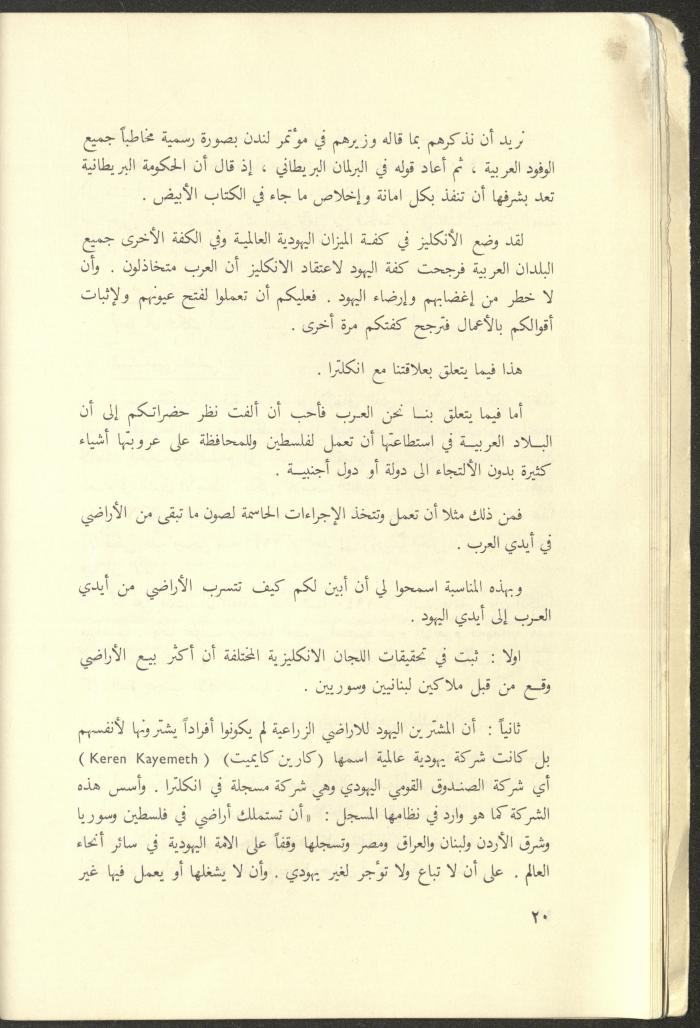 نريد أن نذكرهم بما قاله وزيرهم في مؤتمر لندن بصورة رسمية مخاطباً جميع
الوفود العربية ، ثم أعاد قوله في البرلمان البريطاني ، إذ قال أن الحكومة البريطانية
تعد بشرفها أن تنفذ بكل امانة وإخلاص ما جاء في الكتاب الأبيض .
لقد وضع الأنكليز في كفة الميزان اليهودية العالمية وفي الكفة الأخرى جميع
البلدان العربية فرجحت كفة اليهود لاعتقاد الانكليز أن العرب متخاذلون . وأن
لا خطر من إغضابهم وإرضاء اليهود . فعليكم أن تعملوا لفتح عيونهم ولإثبات
أقوالكم بالأعمال فترجح كفتكم مرة أخرى .
هذا فيما يتعلق بعلاقتنا مع انكلترا .
أما فيما يتعلق بنا نحن العرب فأحب أن ألفت نظر حضراتكم إلى أن
البلاد العربية في استطاعتها أن تعمل لفلسطين وللمحافظة على عروبتها أشياء
كثيرة بدون الألتجاء الى دولة أو دول أجنبية .
فمن ذلك مثلا أن تعمل وتتخذ الإجراءات الحاسمة لصون ما تبقى من الأراضي
في أيدي العرب .
وبهذه المناسبة اسمحوا لي أن أبين لكم كيف تتسرب الأراضي من أيدي
العرب إلى أيدي اليهود .
اولا : ثبت في تحقيقات اللجان الانكليزية المختلفة أن أكثر بيع الأراضي
وقع من قبل ملاكين لبنانيين وسوريين .
ثانياً : أن المشترين اليهود للاراضي الزراعية لم يكونوا أفراداً يشترونها لأنفسهم
بل كانت شركة يهودية عالمية اسمها (كارين كايميت) ( Keren Kayemeth )
أي شركة الصندوق القومي اليهودي وهي شركة مسجلة في انكلترا . وأسس هذه
الشركة كما هو وارد في نظامها المسجل : « أن تستملك أراضي في فلسطين وسوريا
وشرق الأردن ولبنان والعراق ومصر وتسجلها وقفاً على الامة اليهودية في سائر أنحاء
العالم . على أن لا تباع ولا تؤجر لغير يهودي . وأن لا يشغلها أو يعمل فيها غير
٢٠